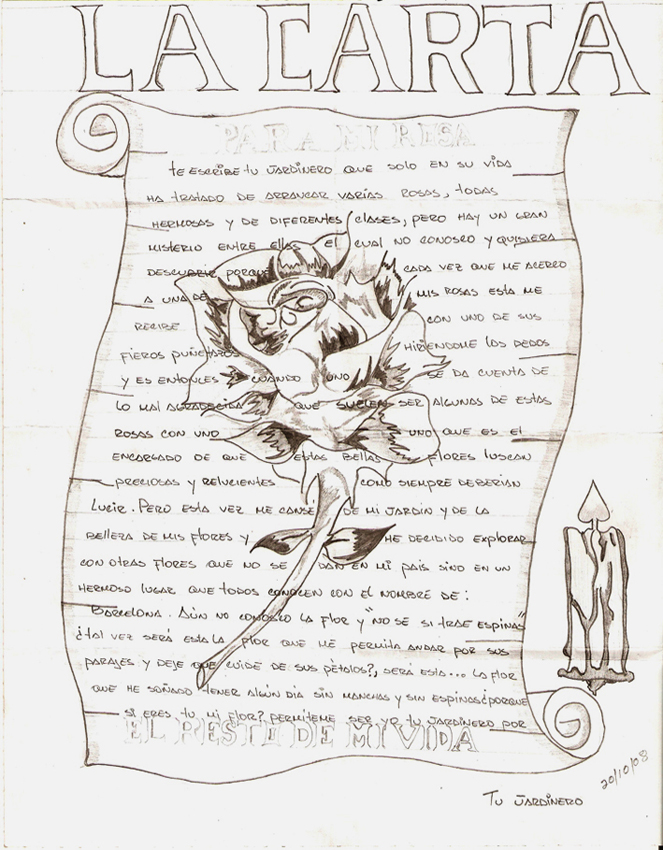 LA CARTA
PARA MI ROSA
te escribe tu jardinero que solo en su vida
ha tratado de arrancar varias rosas, todas
hermosas y de diferentes clases, pero hay un gran
misterio entre ellas el cual no conosco y quisiera
descubrir porque cada vez que me acerco
a una de mis rosas esta me
recibe con uno de sus
fieros puñetazos hiriendome los dedos
y es entonces cuando uno se da cuenta de
lo mal agradecida que suelen ser algunas de estas
rosas con uno uno que es el
encargado de que estas bellas flores luscan
preciosas y relucientes como siempre deberian
lucir. Pero esta vez me canse de mi jardin y de la
belleza de mis flores y he decidido explorar
con otras flores que no se dan en mi pais sino en un
hermoso lugar que todos conocen con el nombre de:
Barcelona. Aún no conosco la flor y "no se si trae espinas"
¿tal vez será esta la flor que me permita andar por sus
parajes y deje que cuide de sus pètalos?, será esta... la flor
que he soñado tener algún dia sin manchas y sin espinas ¿porque
si eres tu mi flor? permiteme ser yo tu jardinero por
EL RESTO DE MI VIDA
20/10/08
Tu jardinero